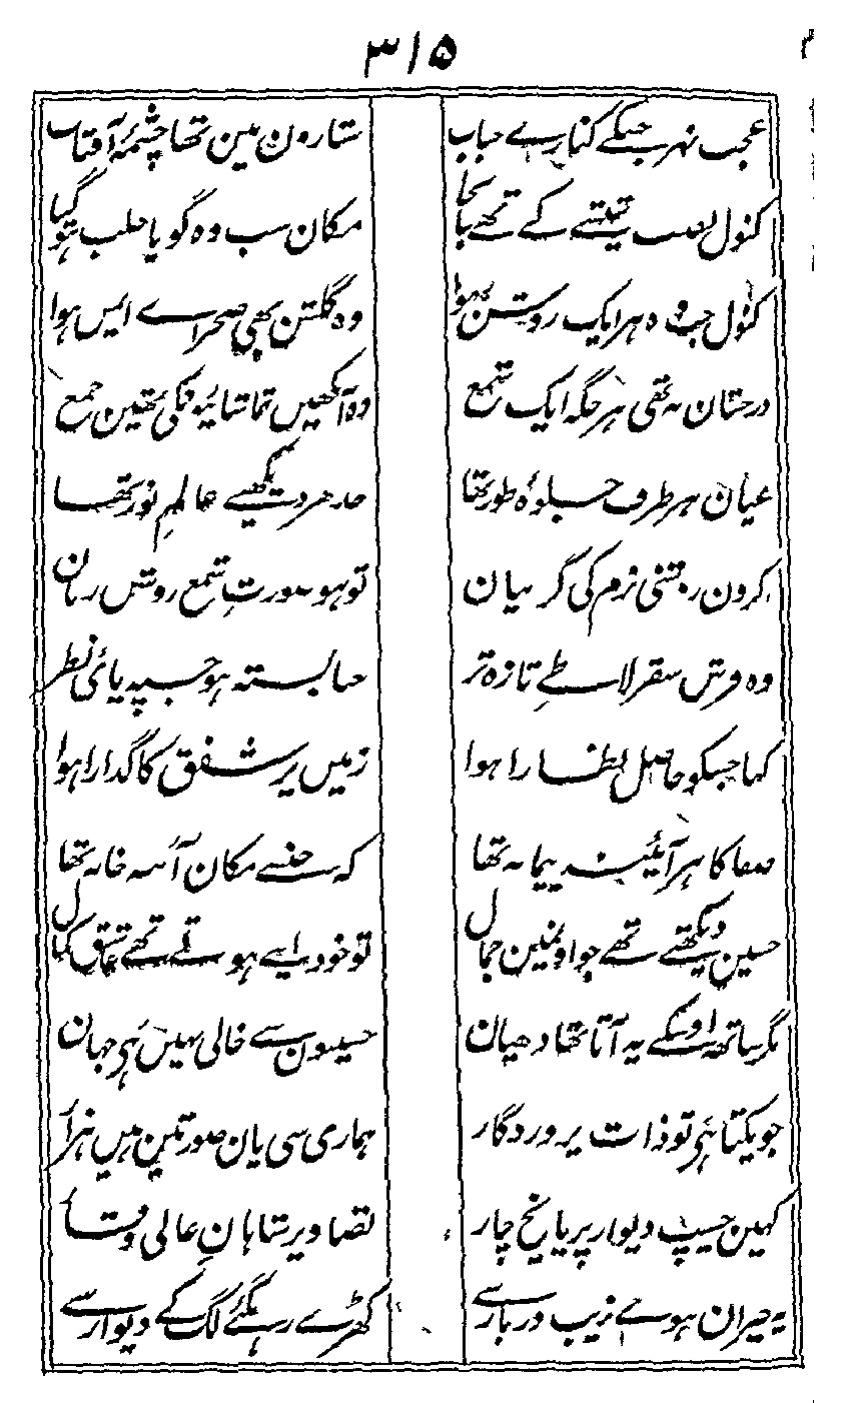 ۳۱۵
عجب نہر جسکے کنارے حباب ستارون مین تھا چشمۂ آفتاب
کنول نصب شیشے کے تھے جا بجا مکان سب وہ گویا حلب ہو گیا
کنول جب وہ ہر ایک روشن ہوا وہ گلشن بھی صحراے ایمن ہوا
درخشان نہ تھی ہر جگہ ایک شمع وہ آنکھیں تماشائیونکی تھین جمع
عیان ہر طرف جلوۂ طور تھا جدھر دیکھیے عالمِ نور تھا
کرون روشنی بزم کی گر بیان تو ہو صورتِ شمع روشن زبان
وہ فرش سقرلاطِ تازہ تر حنا بستہ ہو جسپہ پاے نظر
کہا جسکو حاصل نظارا ہوا زمیں پر شفق کا گدارا ہوا
صفا کا ہر آئینہ پیمانہ تھا کہ جنسے مکان آئنہ خانہ تھا
حسین دیکھتے تھے جو اونمین جمال تو خود اپنے ہوتے تھے عاشق کمال
مگر ساتھ اوسکے یہ آتا تھا دھیان حسینون سے خالی نہیں ہی جہان
جو یکتا ہی تو ذات پروردگار ہماری سی یان صورتین ہیں ہزار
کہین چسپ دیوار پر پانچ چار تصاویر شاہانِ عالی وقار
یہ حیران ہوے زیب دربار سے کھڑے رہگئے لگ کے دیوار سے